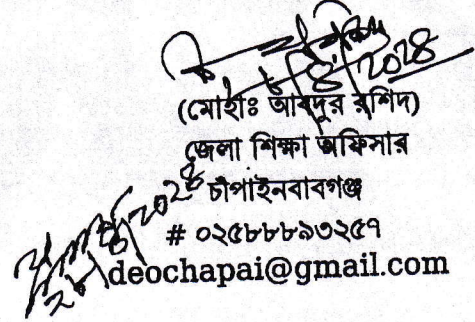 (মোহাঃ আবদুর রশিদ)
জেলা শিক্ষা অফিসার
চাঁপাইনবাবগঞ্জ
# ০২৫৮৮৮৯৩২৫৭
deochapai@gmail.com